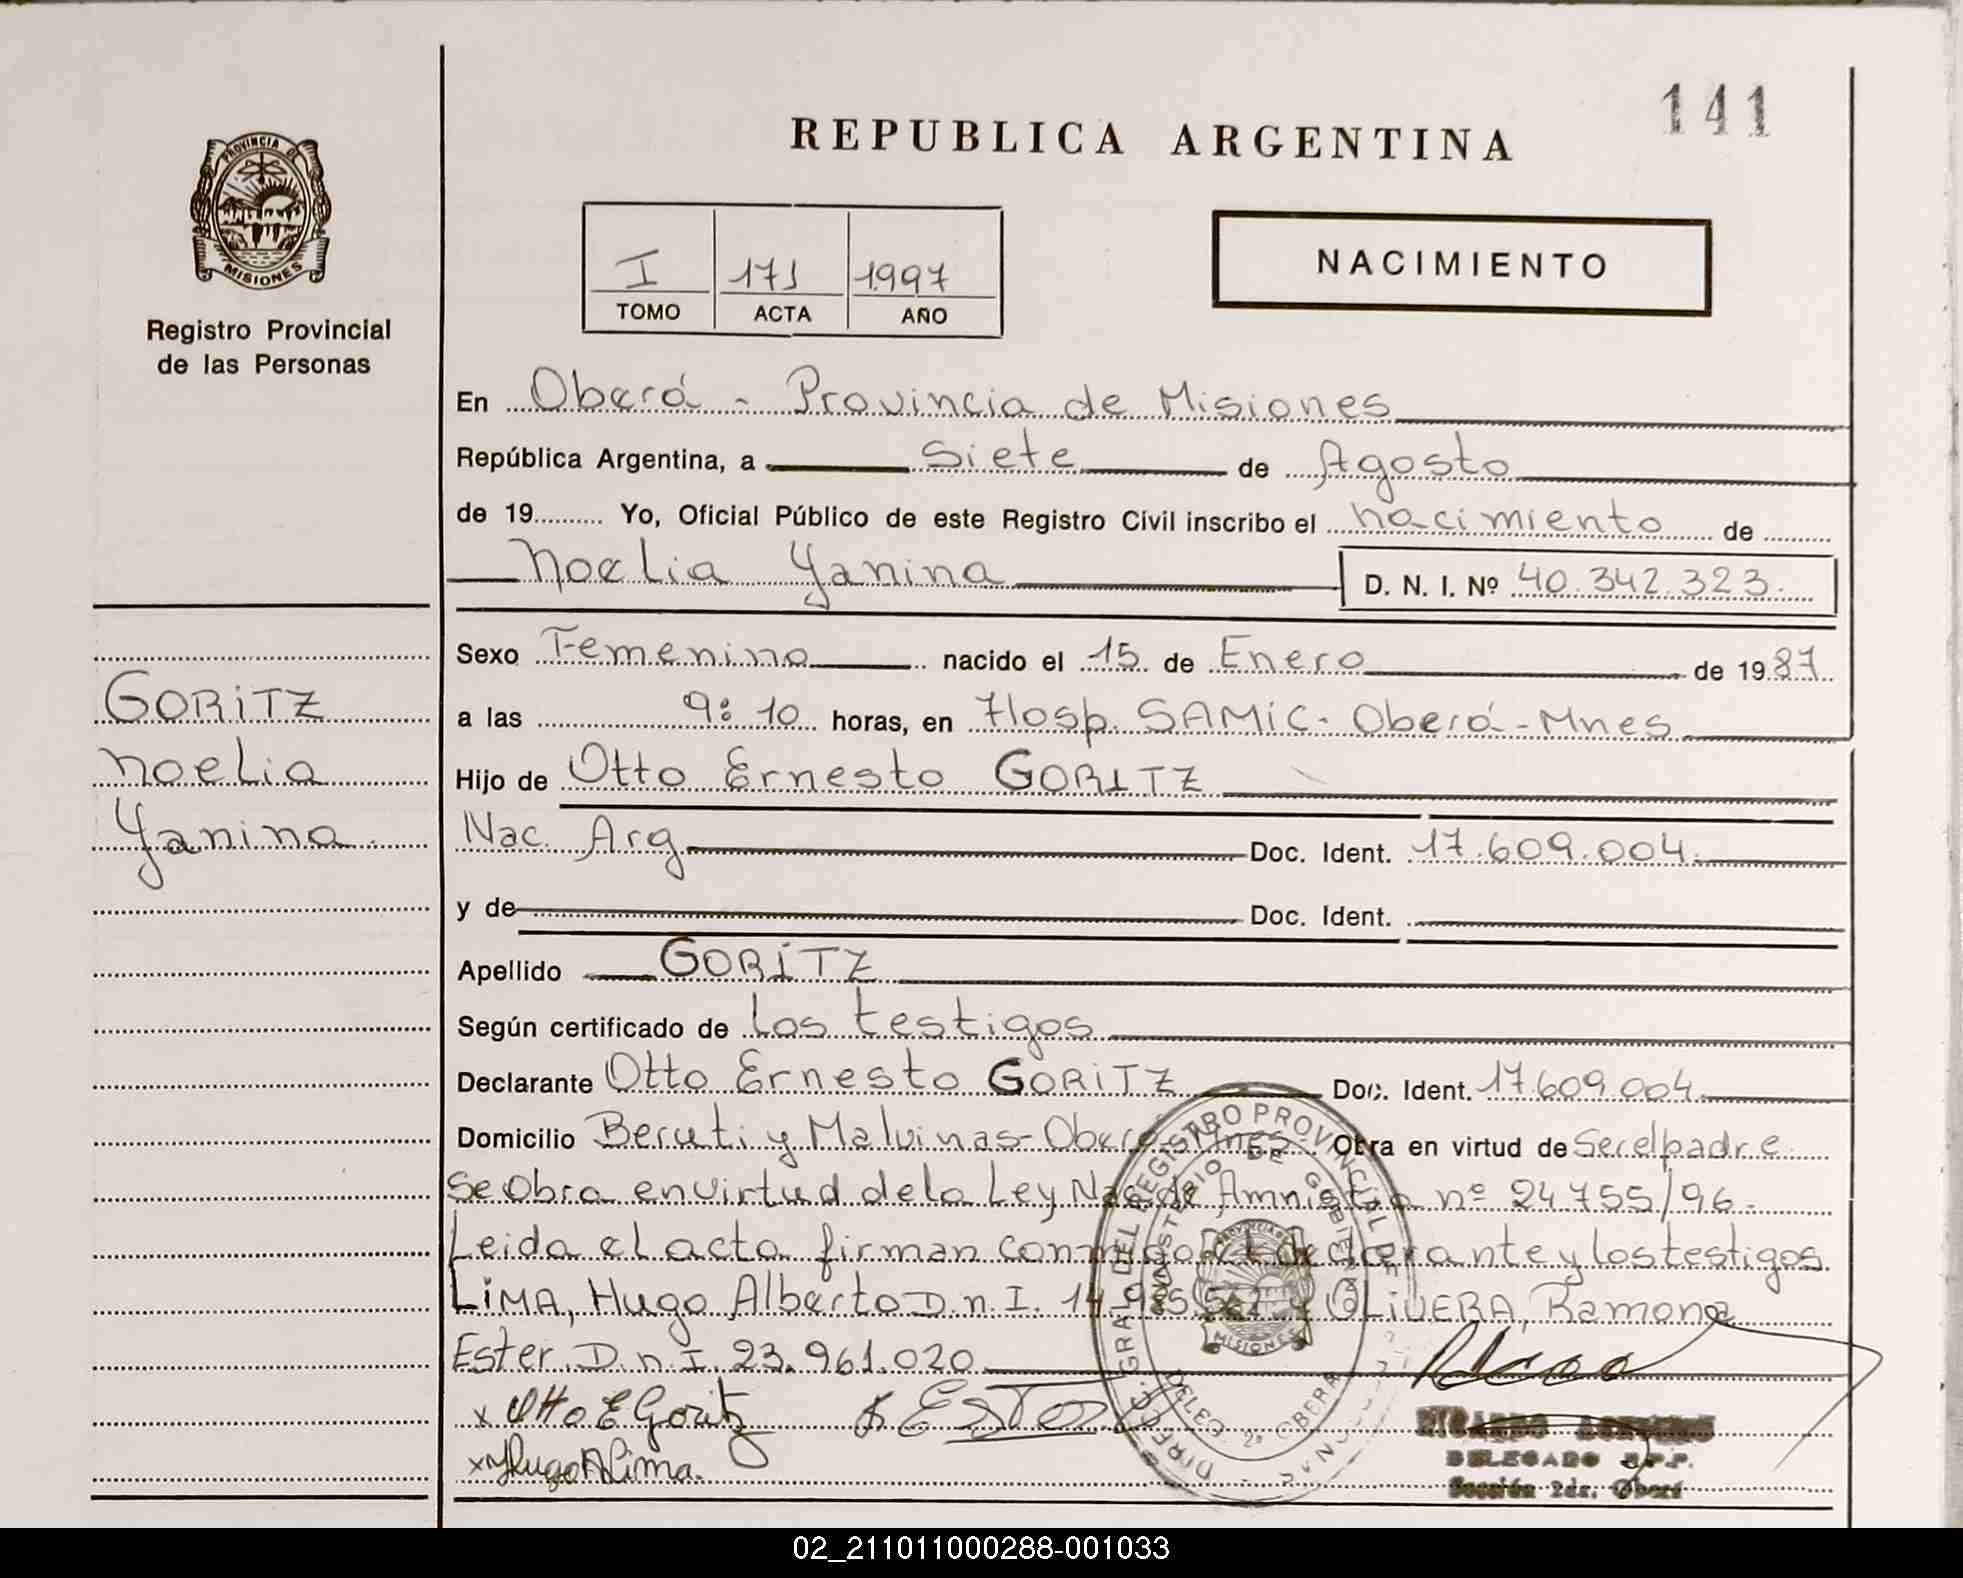 141
REPUBLICA ARGENTINA
PROVINCIA DE
MISIONES
Registro Provincial
de las Personas
I 171 1997
TOMO ACTA AÑO
NACIMIENTO
En Oberá - Provincia de Misiones
República Argentina, a Siete de Agosto
de 19.......... Yo, Oficial Público de este Registro Civil inscribo el nacimiento de
Noelia Yanina D. N. I. Nº 40.342.323.
Sexo Femenino nacido el 15 de Enero de 1987
a las 9:10 horas, en Hosp. SAMIC - Oberá - Mnes
Hijo de Otto Ernesto GORITZ
Nac. Arg Doc. Ident. 17.609.004.
y de Doc. Ident.
Apellido GORITZ
Según certificado de los testigos
Declarante Otto Ernesto GORITZ Doc. Ident. 17.609.004
Domicilio Beruti y Malvinas - Oberá - Mnes. Obra en virtud de Ser el padre
Se Obra en virtud de la Ley Nac. de Amnistía nº 24755/96.
Leida el acta firman conmigo el declarante y los testigos.
LIMA, Hugo Alberto D.n.I. y OLIVERA, Ramona
Ester D.n.I. 23.961.020
x Otto E Goritz
x Hugo A Lima.
GORITZ
Noelia
Yanina.
DIREC. GRAL. DEL REGISTRO PROVINCIAL DE
MINISTERIO DE GOBIERNO
DELEG. 2ª OBERA
MISIONES
DELEGADO R.P.P.
Sección 2da. Oberá
02_211011000288-001033